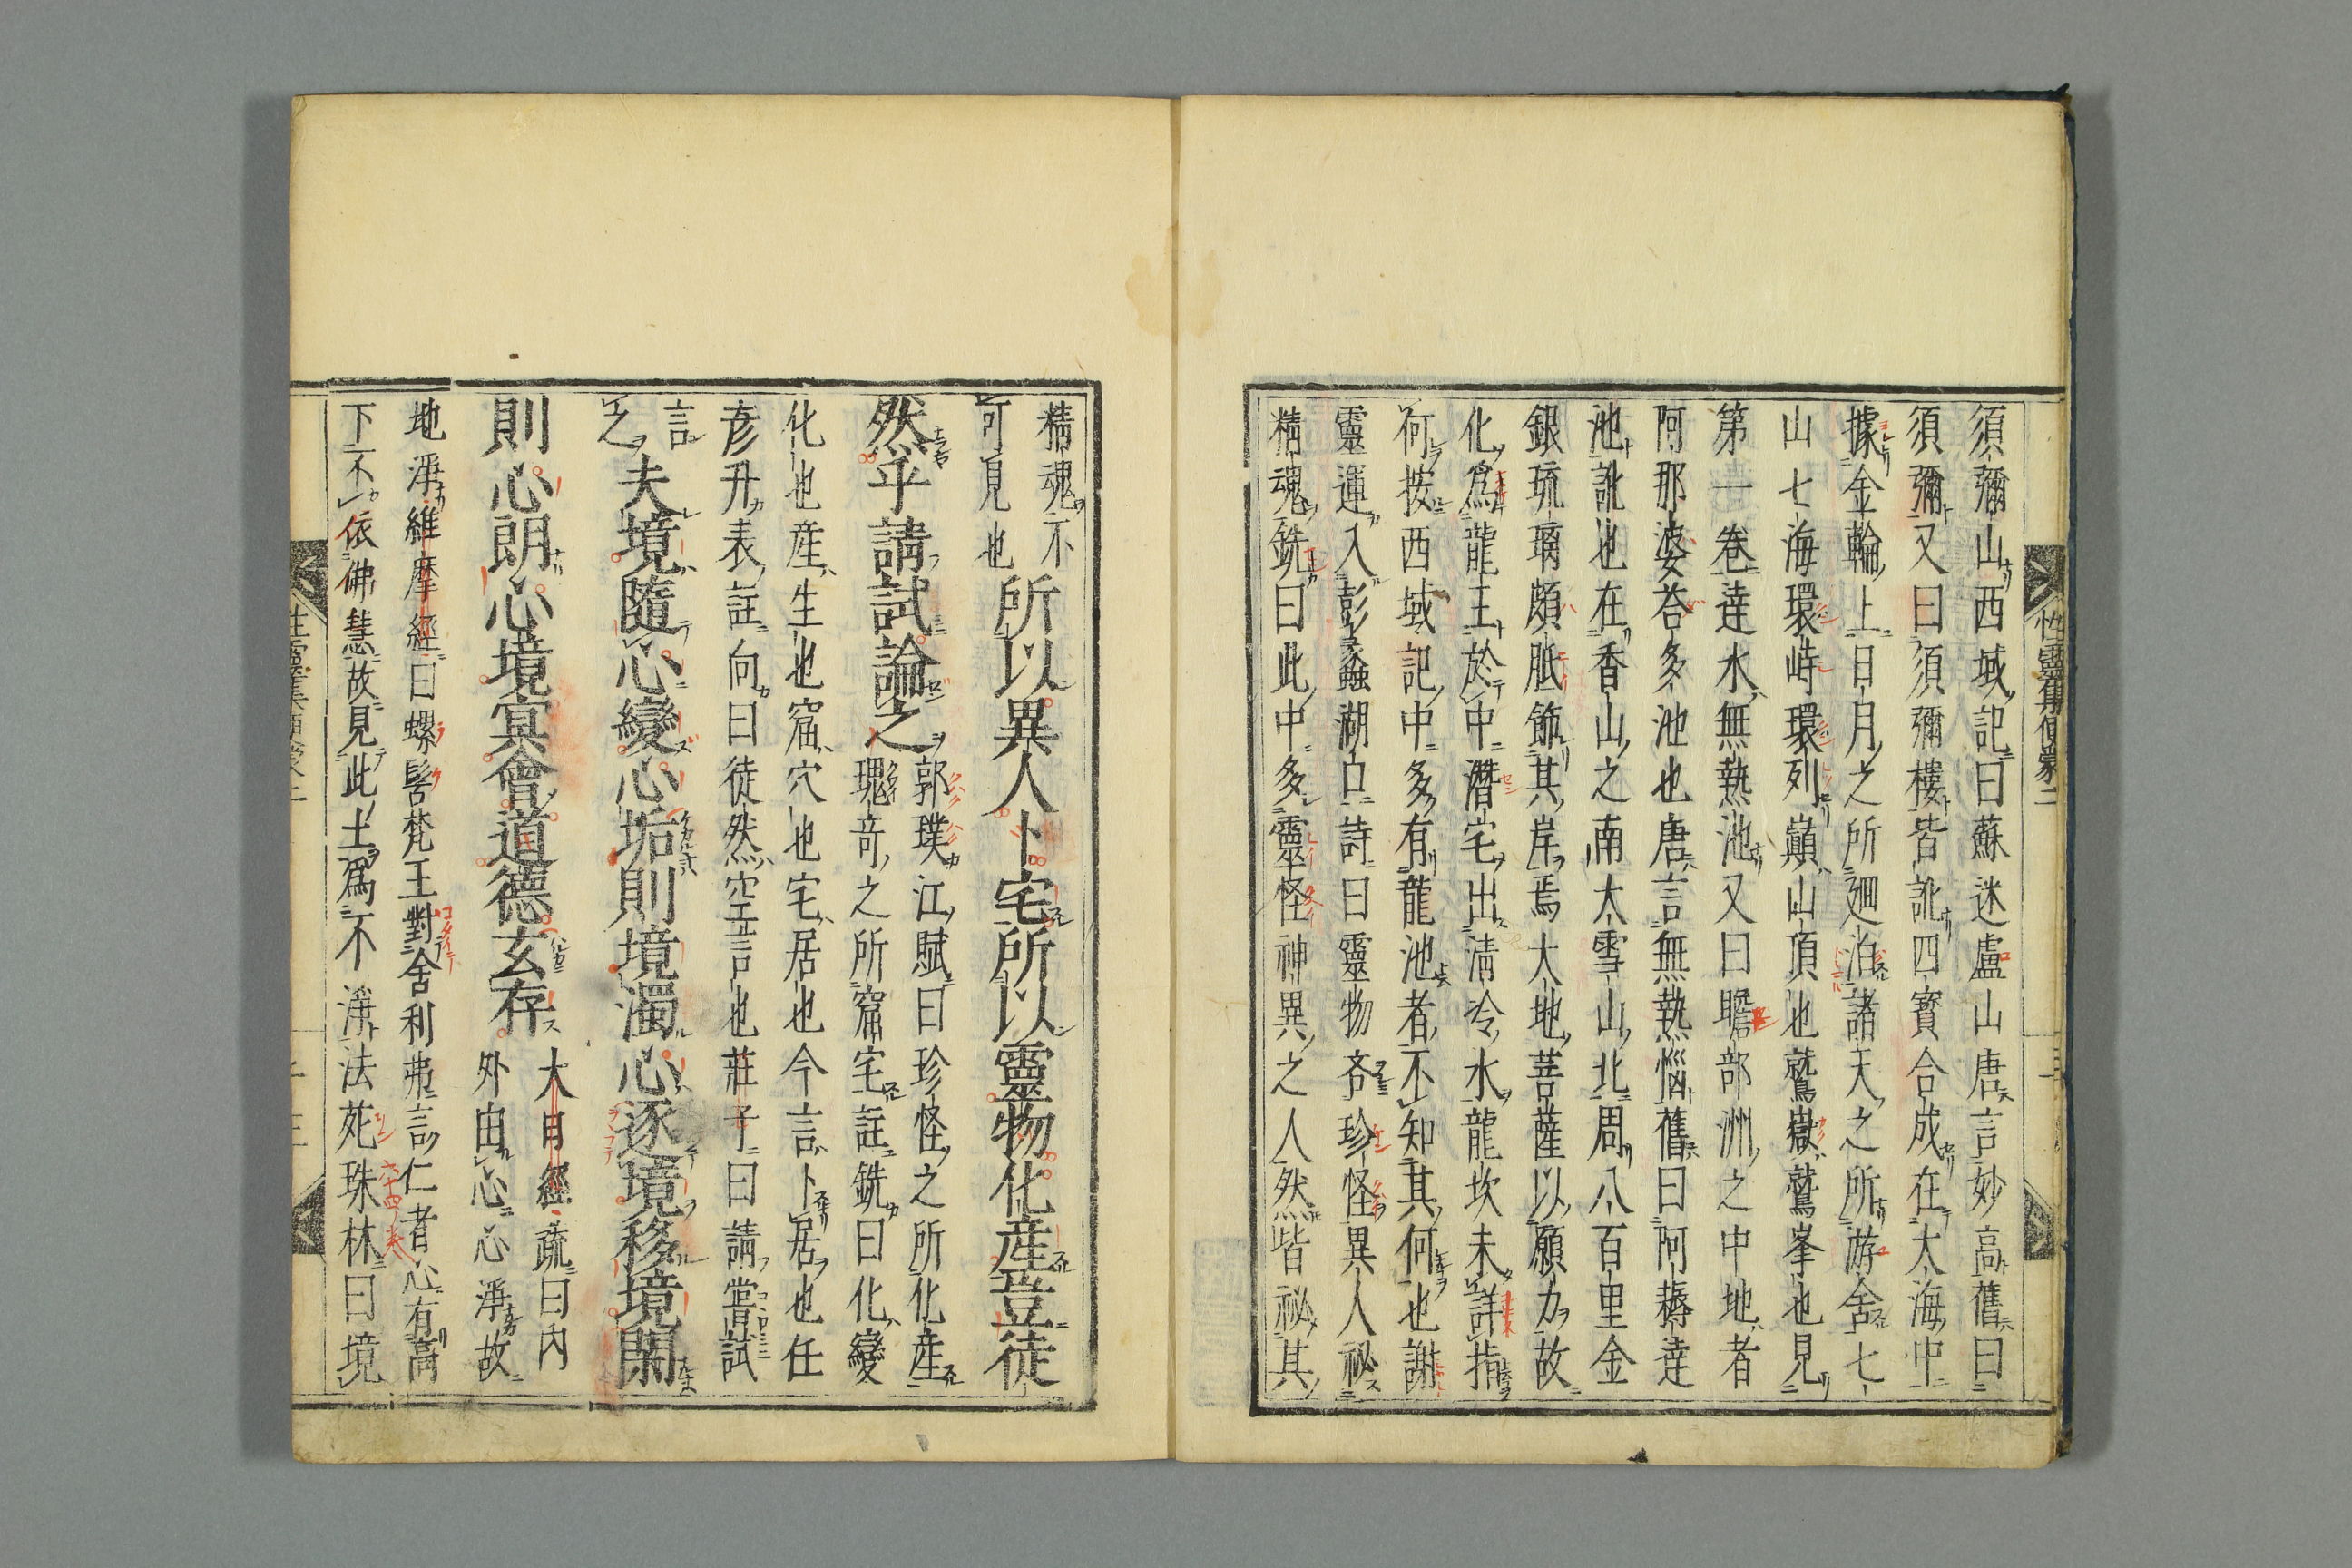 性靈集便蒙二
須彌山西域記曰蘇迷盧山唐言妙高舊曰
須彌又曰須彌樓皆訛四寳合成在大海中
據金輪上日月之所廻泊諸天之所游舍七
山七海環峙環列巓山頂也鷲嶽鷲峯也見
第一卷達水無熱池又曰瞻部洲之中地者
阿那婆荅多池也唐言無熱惱舊曰阿耨達
池訛也在香山之南大雪山北周八百里金
銀琉璃頗胝飾其岸焉大地菩薩以願力故
化爲龍王於中潛宅出清冷水龍坎未詳指
何按西域記中多有龍池者不知其何也謝
靈運入彭蠡湖口詩曰靈物吝珍怪異人祕
精魂銑曰此中多靈怪神異之人然皆祕其
精魂不
可見也
所以異人卜宅所以靈物化産豈徒
然乎請試論之
郭璞江賦曰珍怪之所化産
瑰竒之所窟宅註銑曰化變
化也産生也窟穴也宅居也今言卜居也任
彦升表註向曰徒然空言也莊子曰請嘗試
言
之
夫境隨心變心垢則境濁心逐境移境閑
則心朗心境冥會道德玄存
大日經疏曰内
外由心心淨故
地淨維摩經曰螺髻梵王對舍利弗言仁者心有高
下不依佛慧故見此土爲不淨法苑珠林曰境
六十四ノ卷